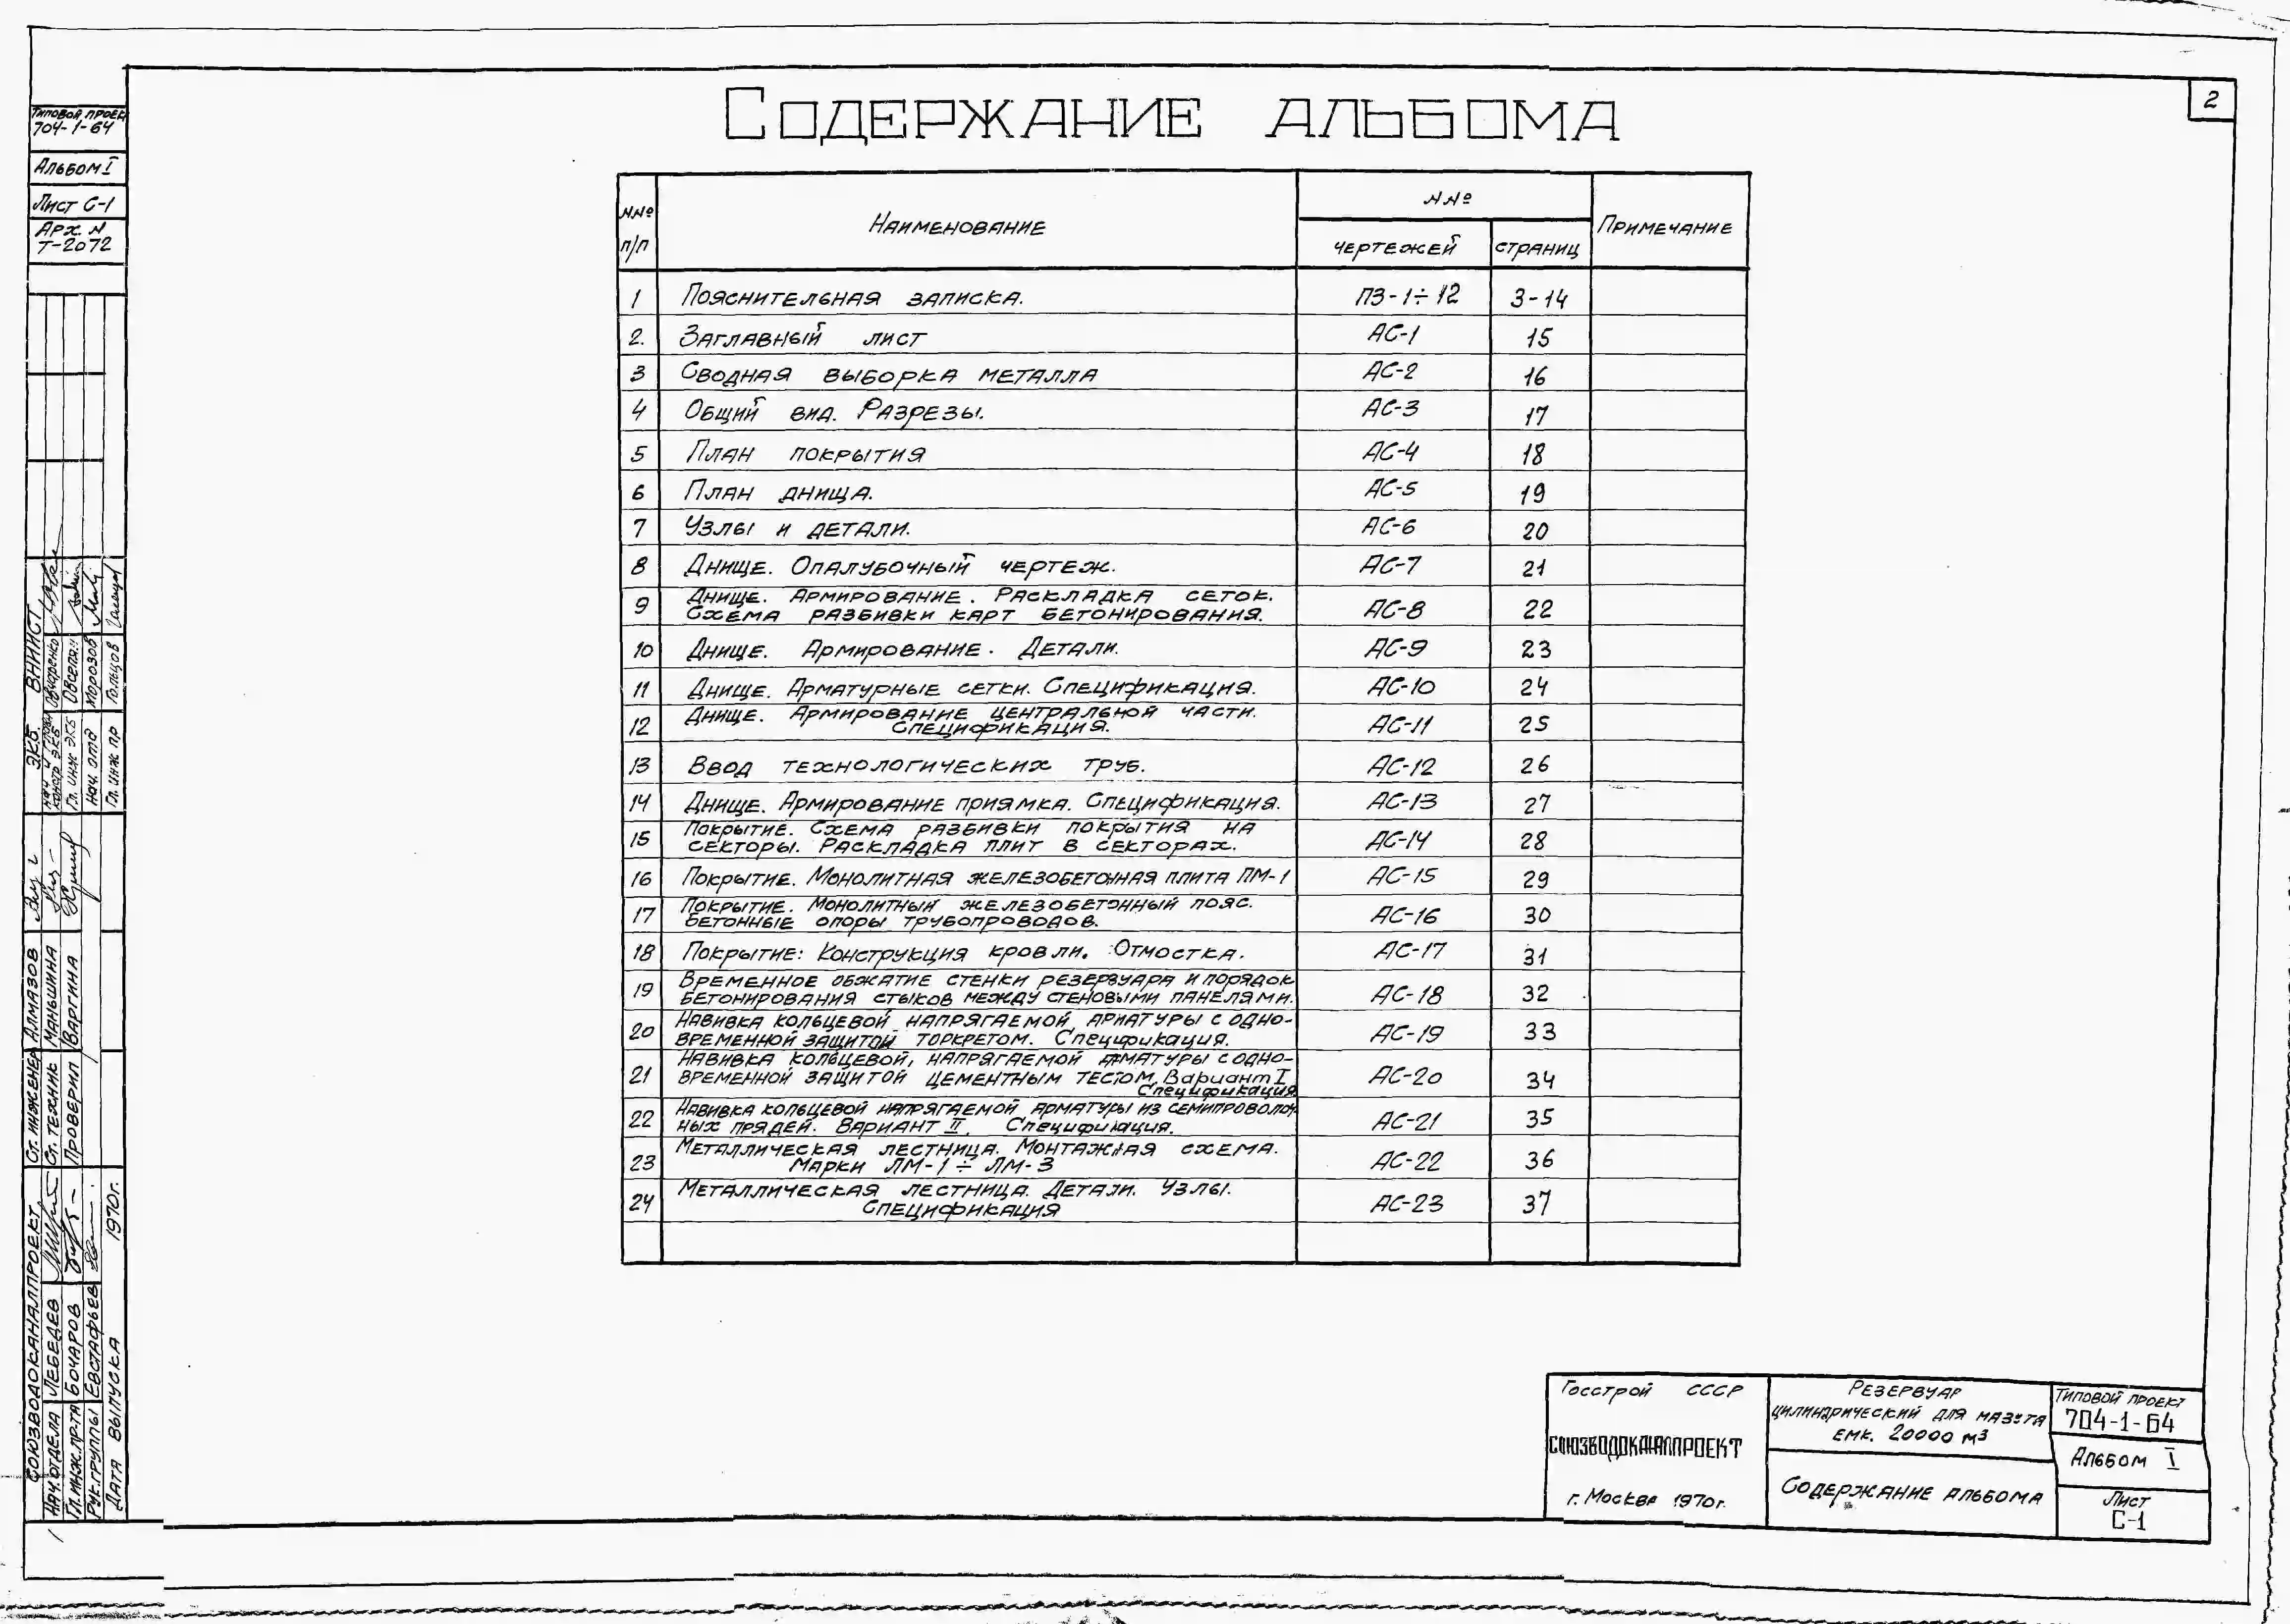 2
Содержание альбома
Типовой проект
704-1-64
Альбом I
Лист С-1
Арх. N
Т-2072
NN° п/п
Наименование
NN°
чертежей
страниц
Примечание
1 Пояснительная записка. ПЗ-1÷12 3-14
2. Заглавный лист АС-1 15
3 Сводная выборка металла АС-2 16
4 Общий вид. Разрезы. АС-3 17
5 План покрытия АС-4 18
6 План днища. АС-5 19
7 Узлы и детали. АС-6 20
8 Днище. Опалубочный чертеж. АС-7 21
9 Днище. Армирование. Раскладка сеток.
Схема разбивки карт бетонирования. АС-8 22
10 Днище. Армирование. Детали. АС-9 23
11 Днище. Арматурные сетки. Спецификация. АС-10 24
12 Днище. Армирование центральной части.
Спецификация. АС-11 25
13 Ввод технологических труб. АС-12 26
14 Днище. Армирование приямка. Спецификация. АС-13 27
15 Покрытие. Схема разбивки покрытия на
секторы. Раскладка плит в секторах. АС-14 28
16 Покрытие. Монолитная железобетонная плита ПМ-1 АС-15 29
17 Покрытие. Монолитный железобетонный пояс.
Бетонные опоры трубопроводов. АС-16 30
18 Покрытие: Конструкция кровли. Отмостка. АС-17 31
19 Временное обжатие стенки резервуара и порядок
бетонирования стыков между стеновыми панелями. АС-18 32
20 Навивка кольцевой напрягаемой арматуры с одно-
временной защитой торкретом. Спецификация. АС-19 33
21 Навивка кольцевой, напрягаемой арматуры с одно-
временной защитой цементным тестом. Вариант I
Спецификация АС-20 34
22 Навивка кольцевой напрягаемой арматуры из семипроволоч-
ных прядей. Вариант II. Спецификация. АС-21 35
23 Металлическая лестница. Монтажная схема.
Марки ЛМ-1÷ЛМ-3 АС-22 36
24 Металлическая лестница. Детали. Узлы.
Спецификация АС-23 37
ЭКБ. ВНИИСТ
Овчаренко
Гл. инж ЭКБ
Нач. отд Морозов
Гл. инж пр Гольцов
Ст. инженер Алмазов
Ст. техник Маньшина
Проверил Варгина
Союзводоканалпроект
Нач. отдела Лебедев
Гл. инж. пр-та Бочаров
Рук. группы Евстафьев
Дата выпуска 1970г.
Госстрой СССР
Союзводоканалпроект
г. Москва 1970г.
Резервуар
цилиндрический для мазута
емк. 20000 м3
Содержание альбома
Типовой проект
704-1-64
Альбом I
Лист
С-1